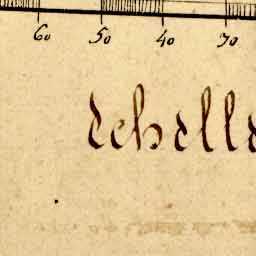 60 50 40 30
Echelle